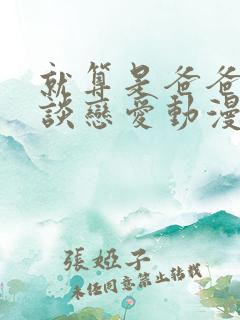 就算是爸爸
談戀愛動漫
張婭子
未經同意禁止轉載